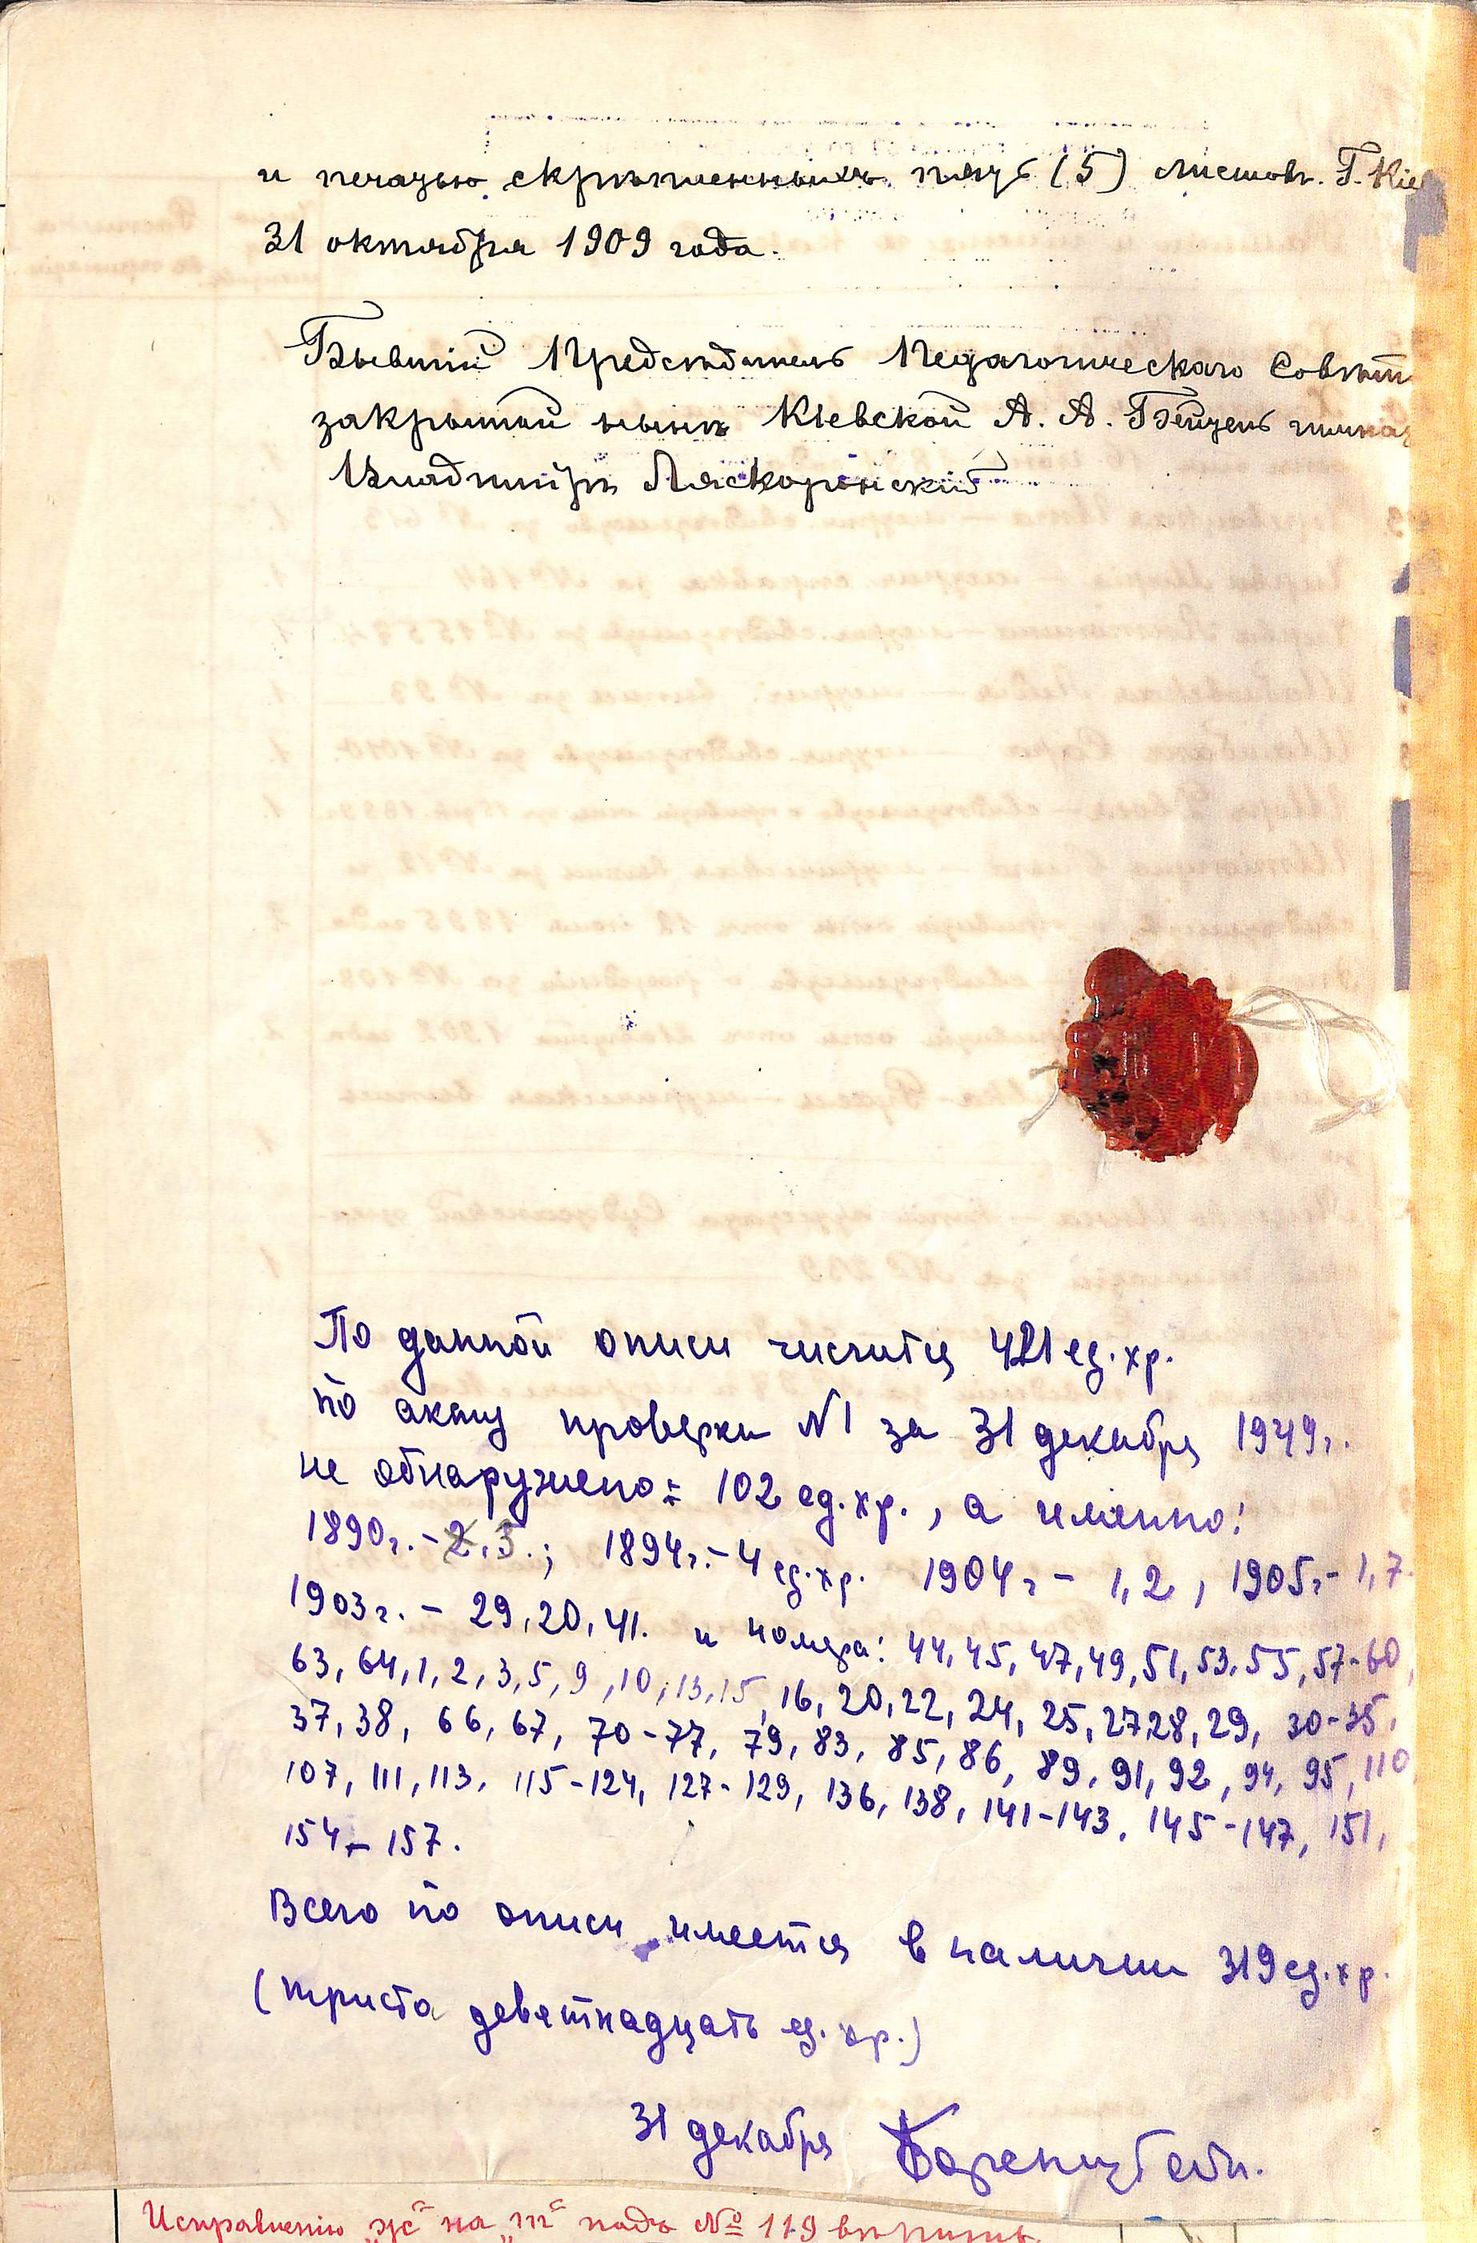 и печатью скрѣпленныхъ пять (5) листовъ. Г. Кіе
31 октября 1909 года.
Бывшій Предсѣдатель Педагогическаго Совѣт
закрытой нынѣ Кіевской А. А. Бейтель гимназ
Владиміръ Ляскоронскій
По данной описи числится 421 ед. хр.
по акту проверки N1 за 31 декабря 1949г.
не обнаружено: 102 ед. хр., а именно:
1890г. - 2, 3.; 1894г. - 4 ед. хр. 1904г - 1, 2, 1905г - 1, 7.
1903г. - 29, 20, 41. и номера: 44, 45, 47, 49, 51, 53, 55, 57-60,
63, 64, 1, 2, 3, 5, 9, 10, 13, 15, 16, 20, 22, 24, 25, 27, 28, 29, 30-35,
37, 38, 66, 67, 70-77, 79, 83, 85, 86, 89, 91, 92, 94, 95, 110,
107, 111, 113, 115-124, 127-129, 136, 138, 141-143, 145-147, 151,
154-157.
Всего по описи имеется в наличии 319 ед. хр.
(триста девятнадцать ед. хр.)
31 декабря
Исправленію „ж“ на „т“ подъ № 119 вѣрить.